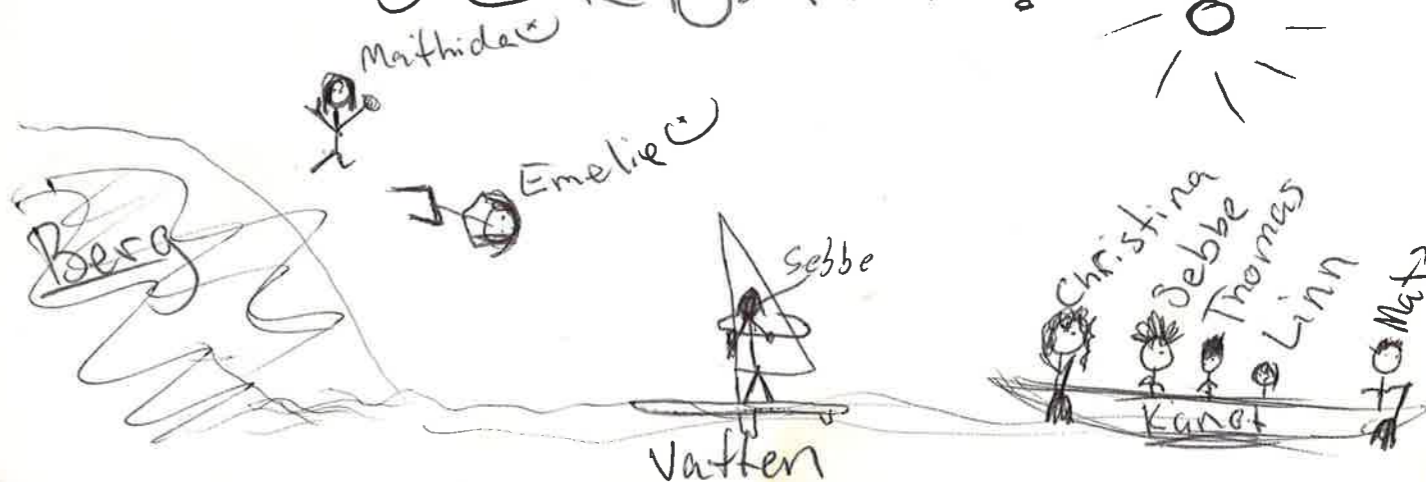 Maithida
Emelie
Berg
Sebbe
Christina
Sebbe
Thomas
Linn
Kanot
Vatten